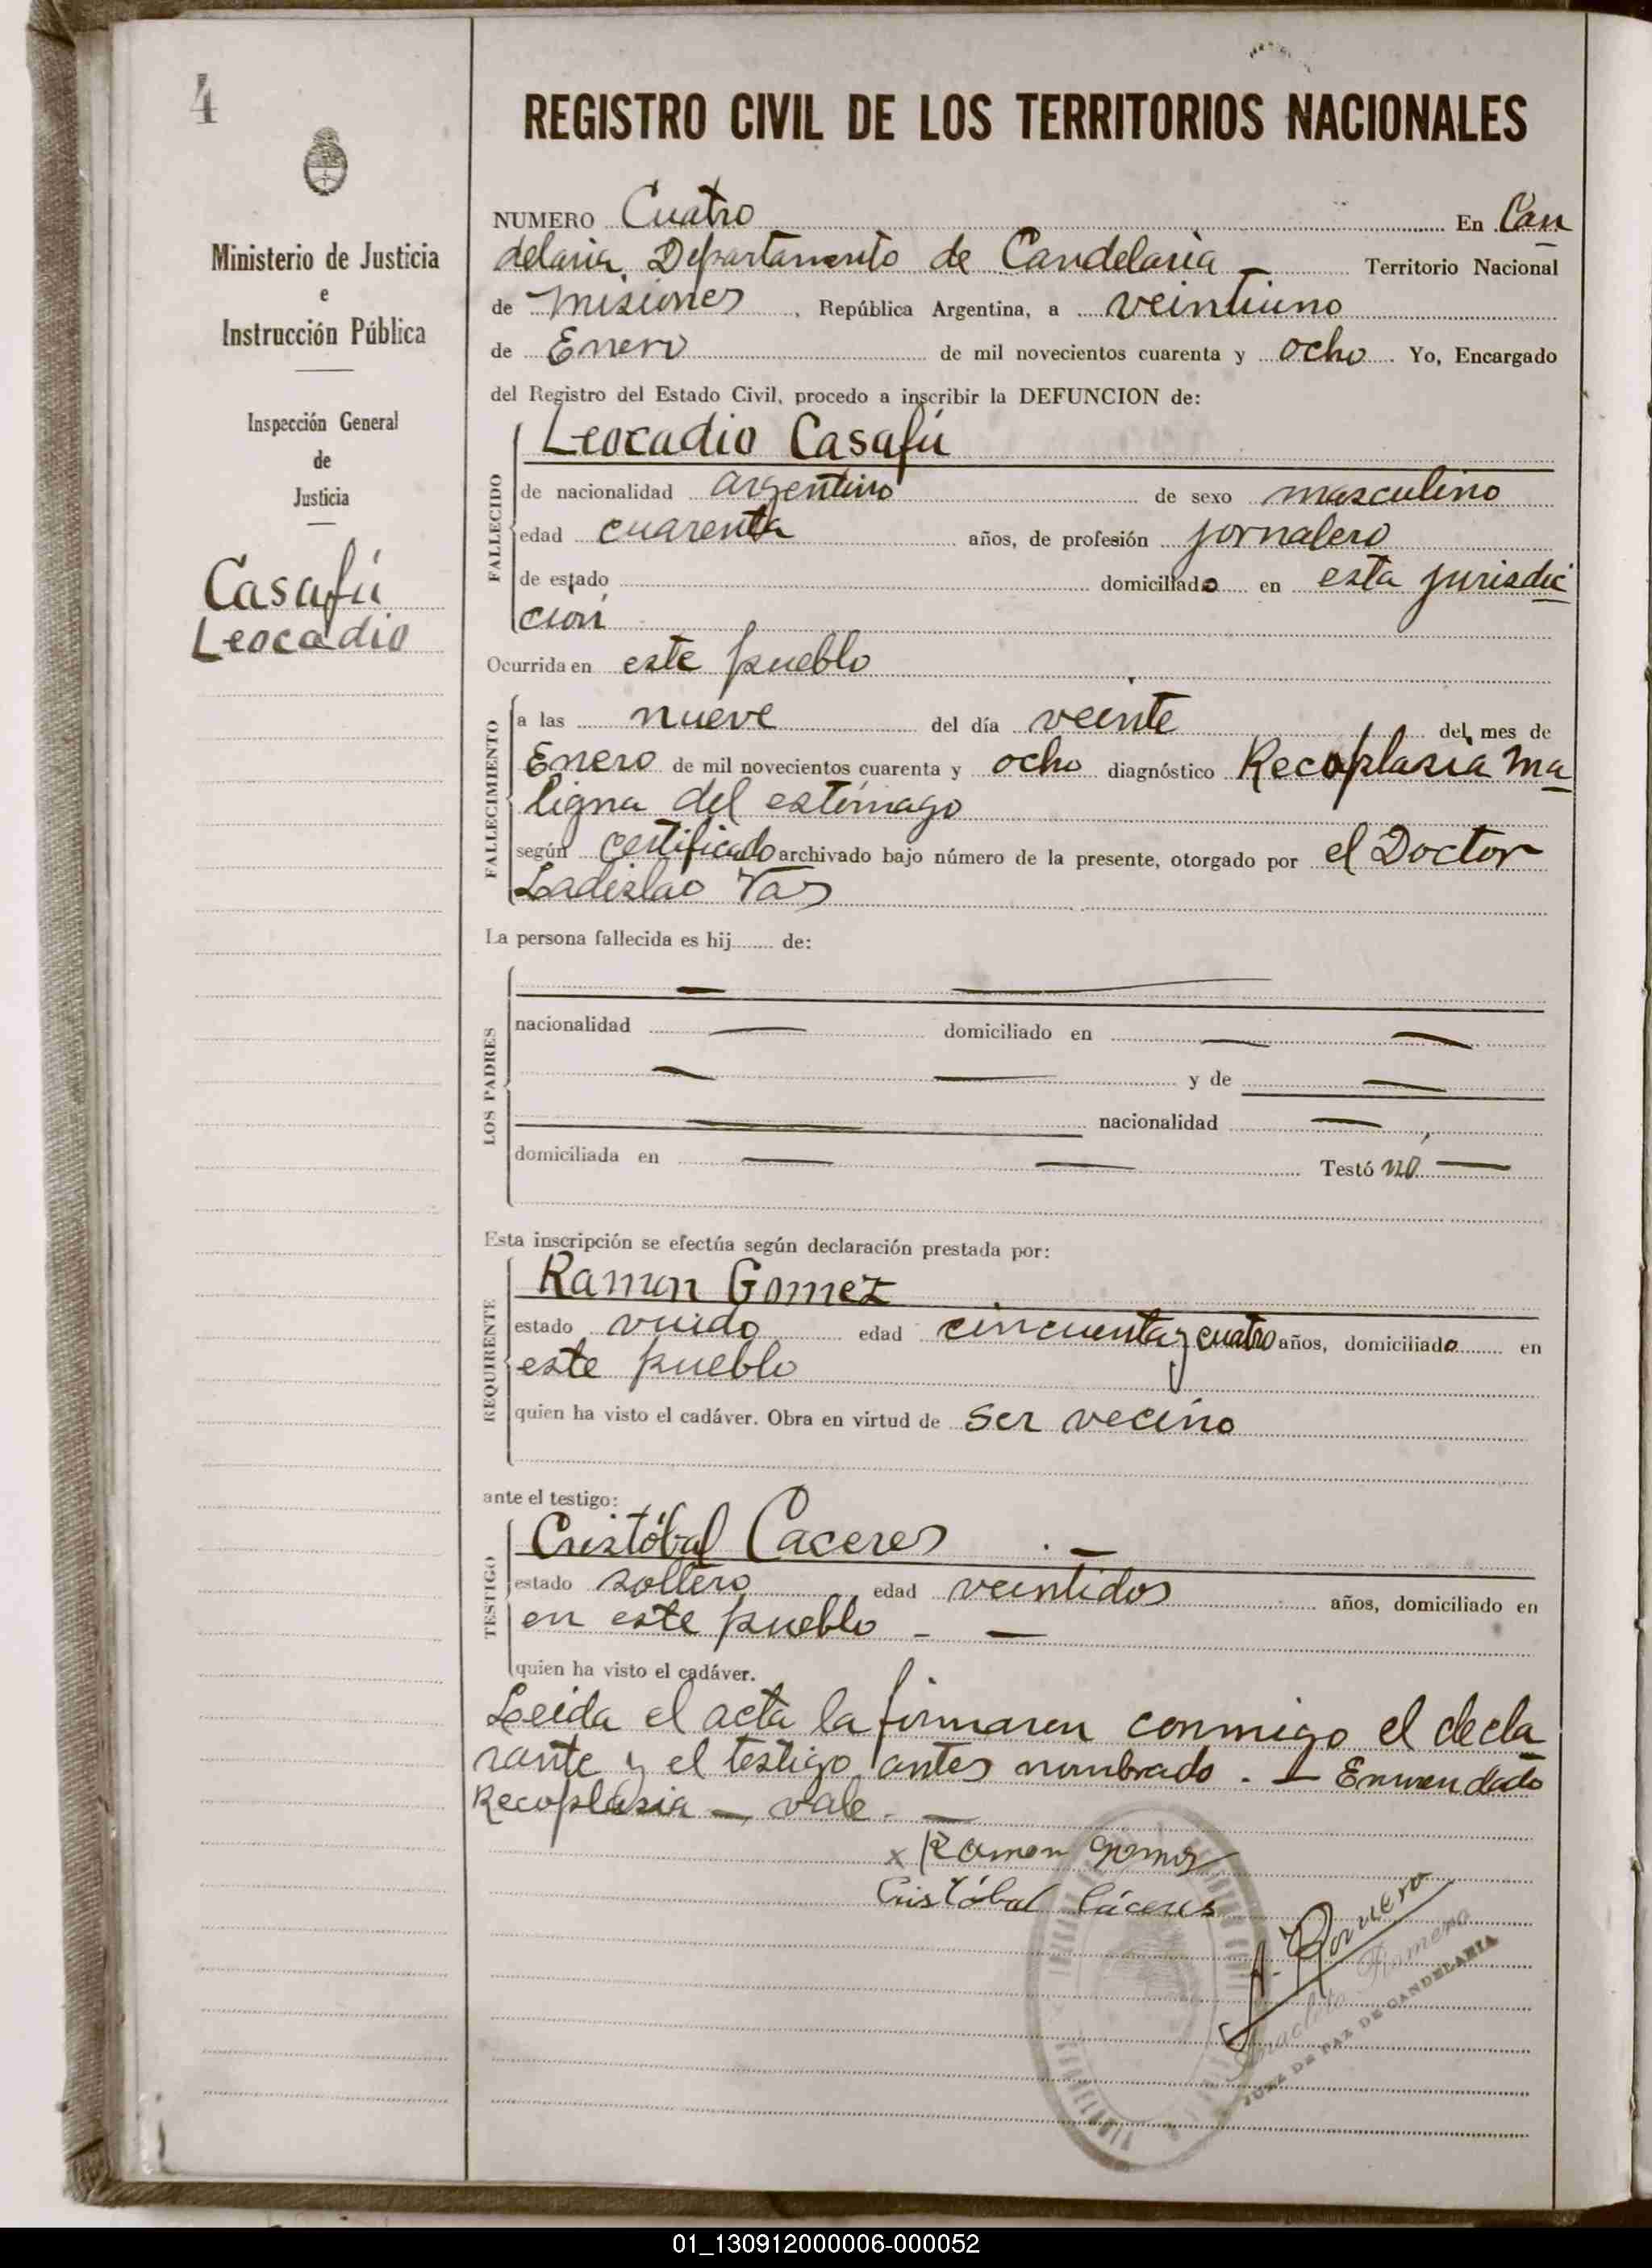 4
Ministerio de Justicia
e
Instrucción Pública
Inspección General
de
Justicia
Casafú
Leocadio
REGISTRO CIVIL DE LOS TERRITORIOS NACIONALES
NUMERO Cuatro En Can
delaria Departamento de Candelaria — Territorio Nacional
de Misiones, República Argentina, a veintiuno
de Enero de mil novecientos cuarenta y ocho. Yo, Encargado
del Registro del Estado Civil, procedo a inscribir la DEFUNCION de:
FALLECIDO
Leocadio Casafú
de nacionalidad argentino de sexo masculino
edad cuarenta años, de profesión jornalero
de estado domiciliado en esta jurisdic
ción
Ocurrida en este pueblo
FALLECIMIENTO
a las nueve del día veinte del mes de
Enero de mil novecientos cuarenta y ocho diagnóstico Recoplasia ma
ligna del estómago
según certificado archivado bajo número de la presente, otorgado por el Doctor
Ladislao Vas
La persona fallecida es hij........ de:
LOS PADRES
nacionalidad — domiciliado en — —
— — y de —
— nacionalidad —
domiciliada en — — Testó no —
Esta inscripción se efectúa según declaración prestada por:
REQUIRENTE
Ramon Gomez
estado viudo edad cincuenta y cuatro años, domiciliado en
este pueblo
quien ha visto el cadáver. Obra en virtud de ser vecino
ante el testigo:
TESTIGO
Cristóbal Caceres . —
estado soltero edad veintidos años, domiciliado en
en este pueblo - —
quien ha visto el cadáver.
Leida el acta la firmaron conmigo el decla
rante y el testigo antes nombrado. — Enmendado
Recoplasia — vale. —
x Ramon Gomez
Cristóbal Cáceres
A. Romero
Romero
JUEZ DE PAZ DE CANDELARIA
01_130912000006-000052